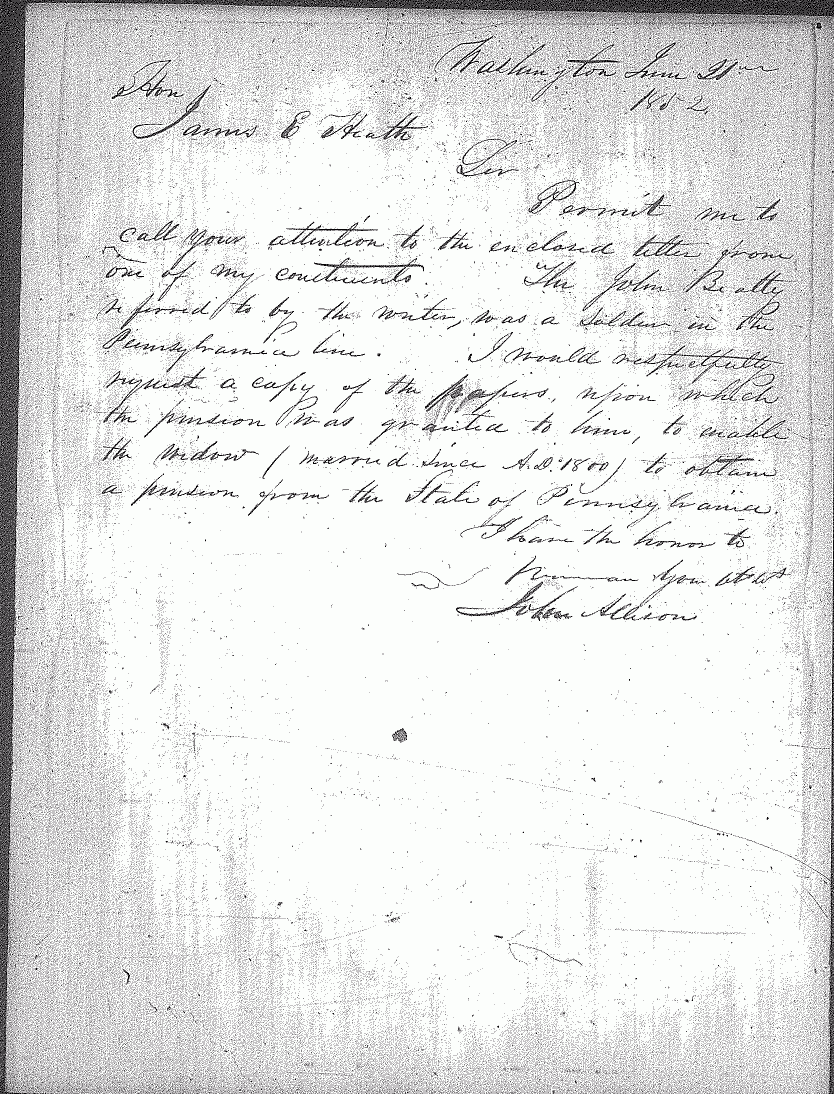 Washington June
1852.
Hon
James E Heath
Sir
Permit me to
call your attention to the enclosed letter from
one of my constituents. The John Beatty
referred to by the writer, was a soldier in the
Pennsylvania line. I would respectfully
request a copy of the papers, upon which
the pension was granted to him, to enable
the widow (married since A.D. 1800) to obtain
a pension from the State of Pennsylvania.
I have the honor to
remain your obt svt
John Allison